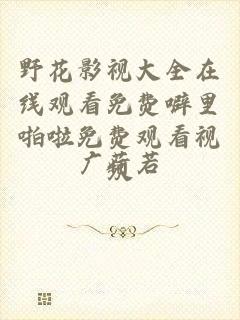 野花影视大全在
线观看免费噼里
啪啦免费观看视
广 若